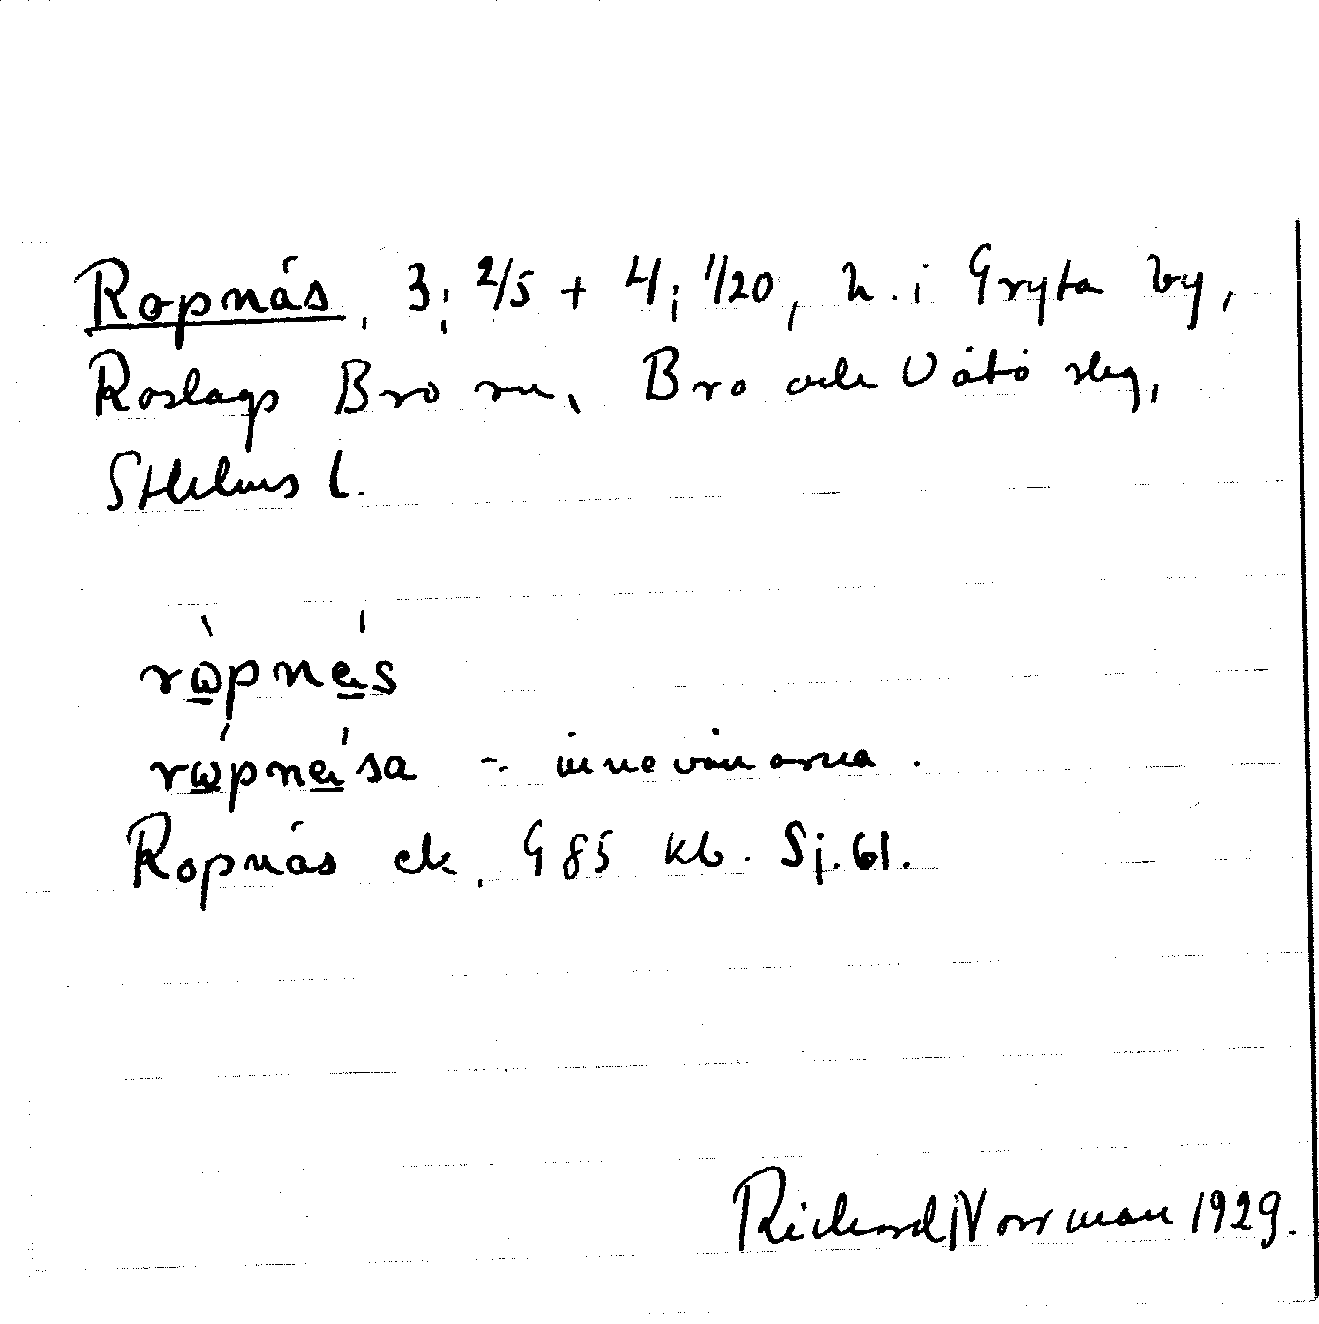 Ropnäs, 3; 2/5 + 4; 1/20, h. i Gryta by,
Roslags Bro sn, Bro och Vätö slg,
Sthlms l.
rɷ̀pnás
rɷ́pnása - innevånarna.
Ropnäs ek. G 85 kb. Sj. 61.
Richard Norrman 1929.